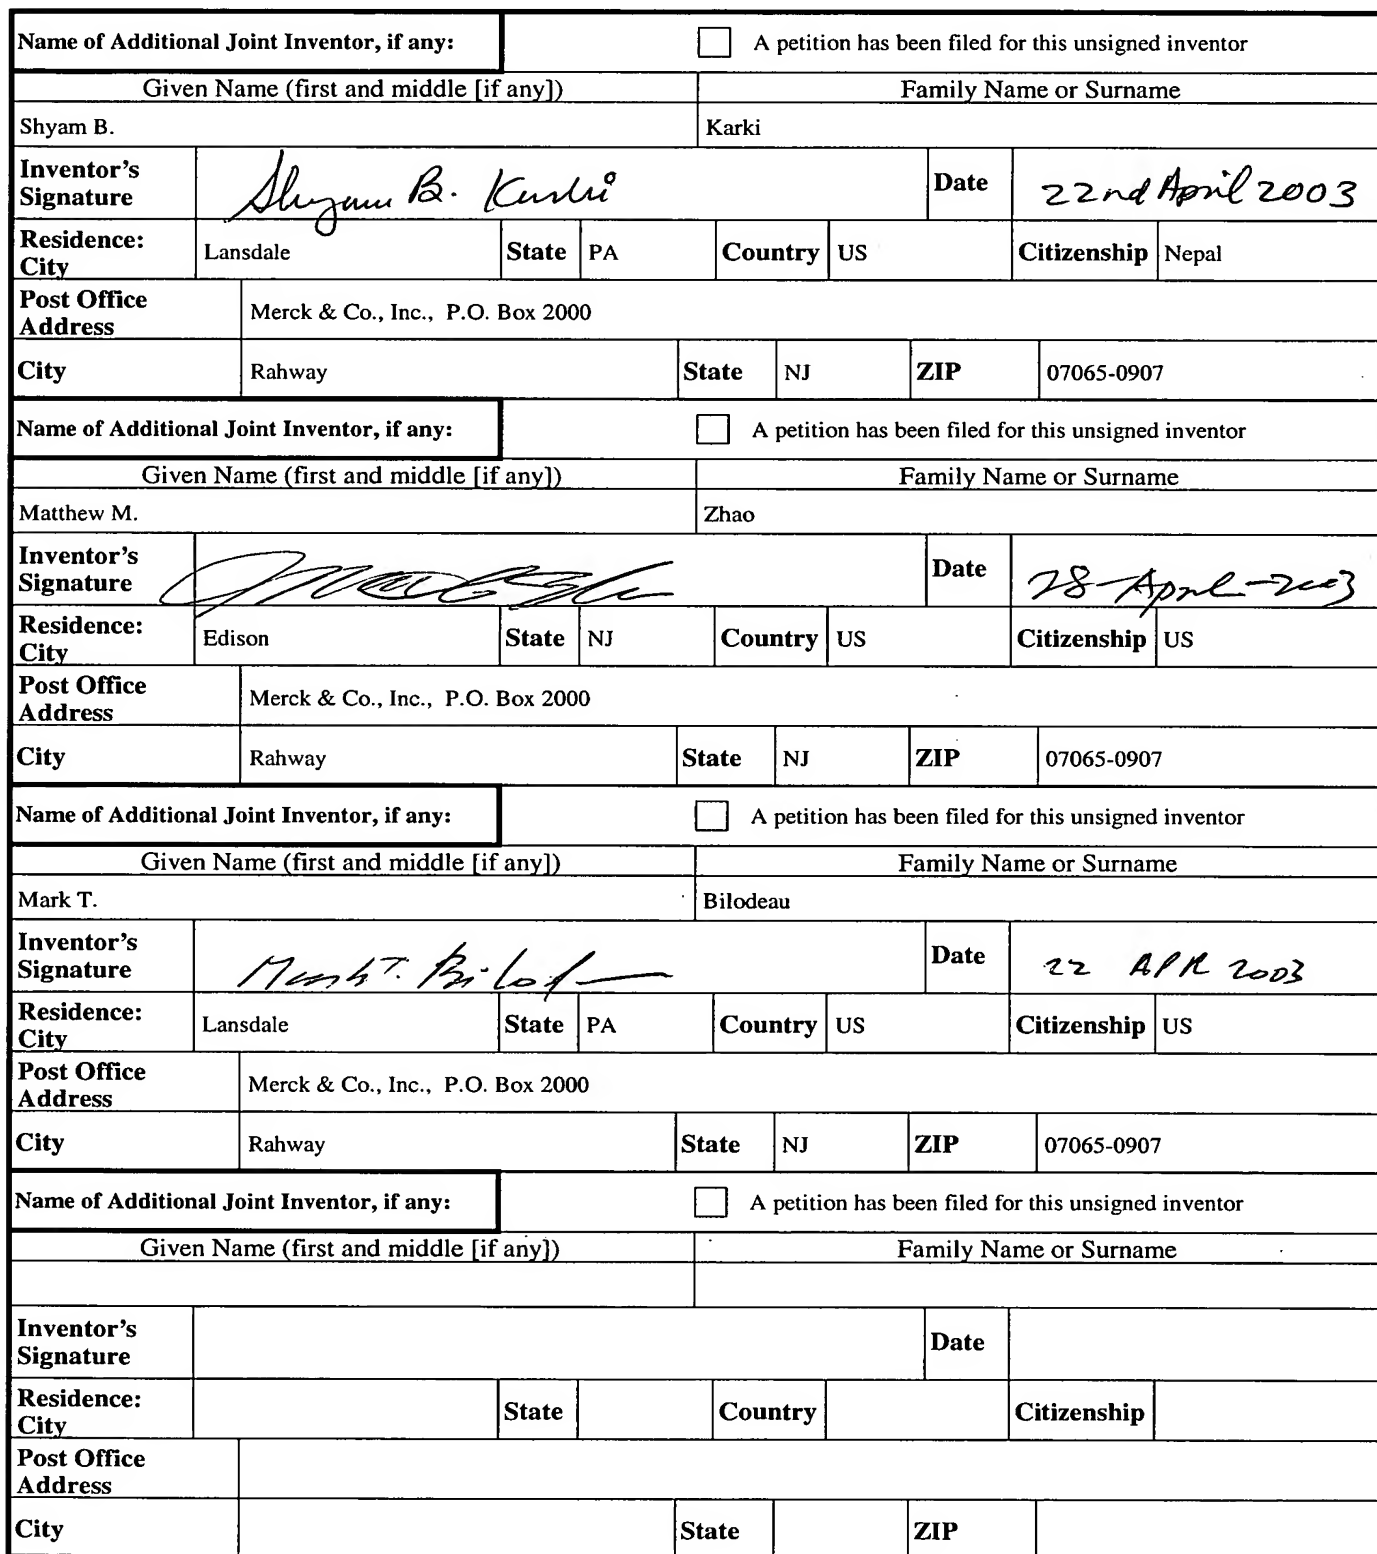 Name of Additional Joint Inventor, if any: A petition has been filed for this unsigned inventor
Given Name (first and middle [if any]) Family Name or Surname
Shyam B. Karki
Inventor's Signature Shyam B. Karki Date 22nd April 2003
Residence: City Lansdale State PA Country US Citizenship Nepal
Post Office Address Merck & Co., Inc., P.O. Box 2000
City Rahway State NJ ZIP 07065-0907
Name of Additional Joint Inventor, if any: A petition has been filed for this unsigned inventor
Given Name (first and middle [if any]) Family Name or Surname
Matthew M. Zhao
Inventor's Signature Date 28-April-2003
Residence: City Edison State NJ Country US Citizenship US
Post Office Address Merck & Co., Inc., P.O. Box 2000
City Rahway State NJ ZIP 07065-0907
Name of Additional Joint Inventor, if any: A petition has been filed for this unsigned inventor
Given Name (first and middle [if any]) Family Name or Surname
Mark T. Bilodeau
Inventor's Signature Mark T. Date 22 APR 2003
Residence: City Lansdale State PA Country US Citizenship US
Post Office Address Merck & Co., Inc., P.O. Box 2000
City Rahway State NJ ZIP 07065-0907
Name of Additional Joint Inventor, if any: A petition has been filed for this unsigned inventor
Given Name (first and middle [if any]) Family Name or Surname
Inventor's Signature Date
Residence: City State Country Citizenship
Post Office Address
City State ZIP